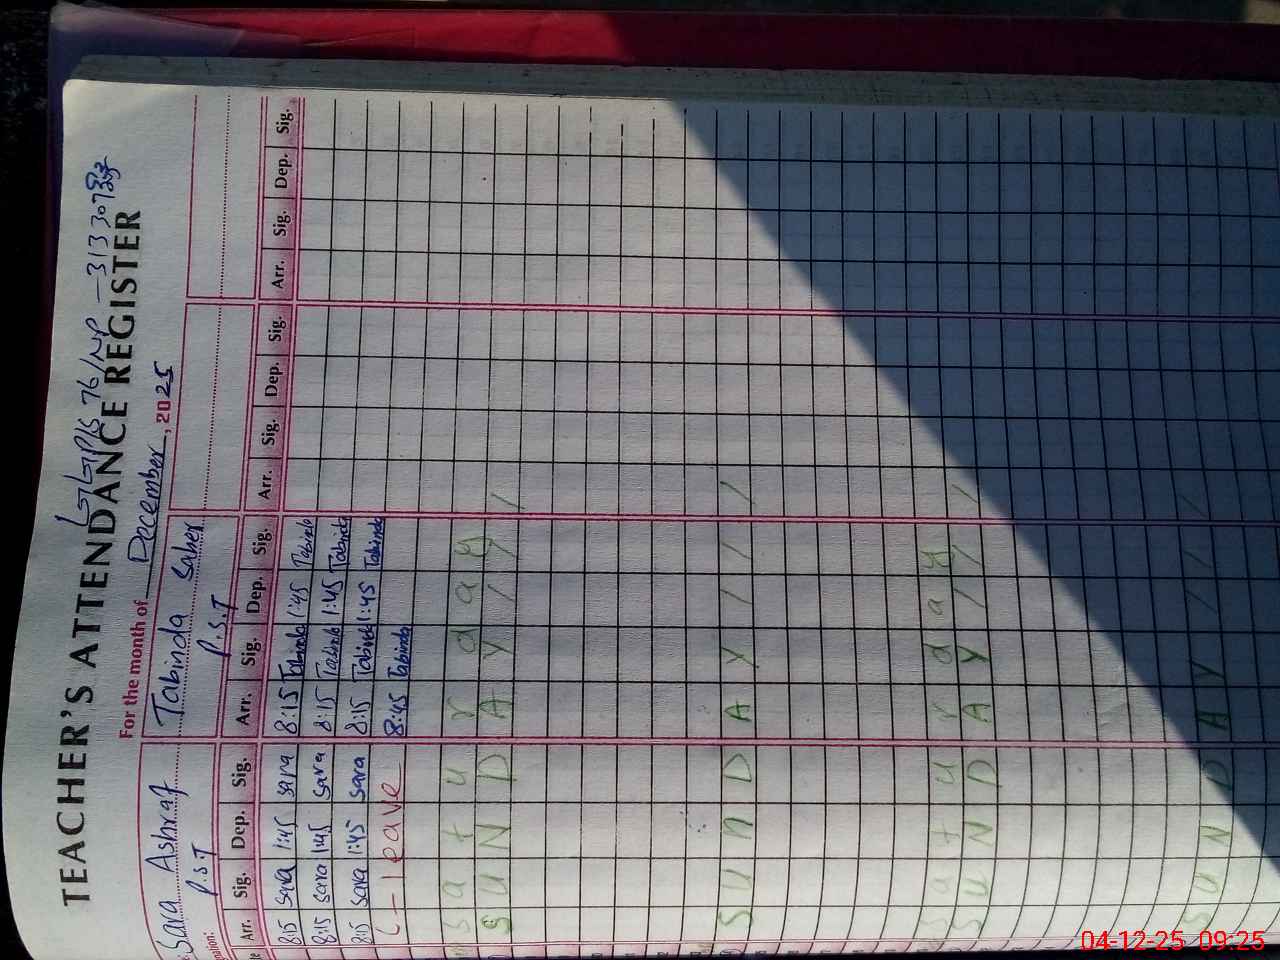 TEACHER'S ATTENDANCE REGISTER
For the month of December, 2025
Sara Ashraf
Tabinda Saber
P.S.T
P.S.T
Arr. Sig. Dep. Sig. Arr. Sig. Dep. Sig. Arr. Sig. Dep. Sig. Arr. Sig. Dep. Sig.
8:15 Sara 1:45 Sara 8:15 Tabinda 1:45 Tabinda
8:15 Sara 1:45 Sara 8:15 Tabinda 1:45 Tabinda
8:15 Sara 1:45 Sara 8:15 Tabinda 1:45 Tabinda
L-leave 8:45 Tabinda
Saturday
SUNDAY
SUnDAY
Saturday
SUNDAY
SUNDAY
04-12-25 09:25